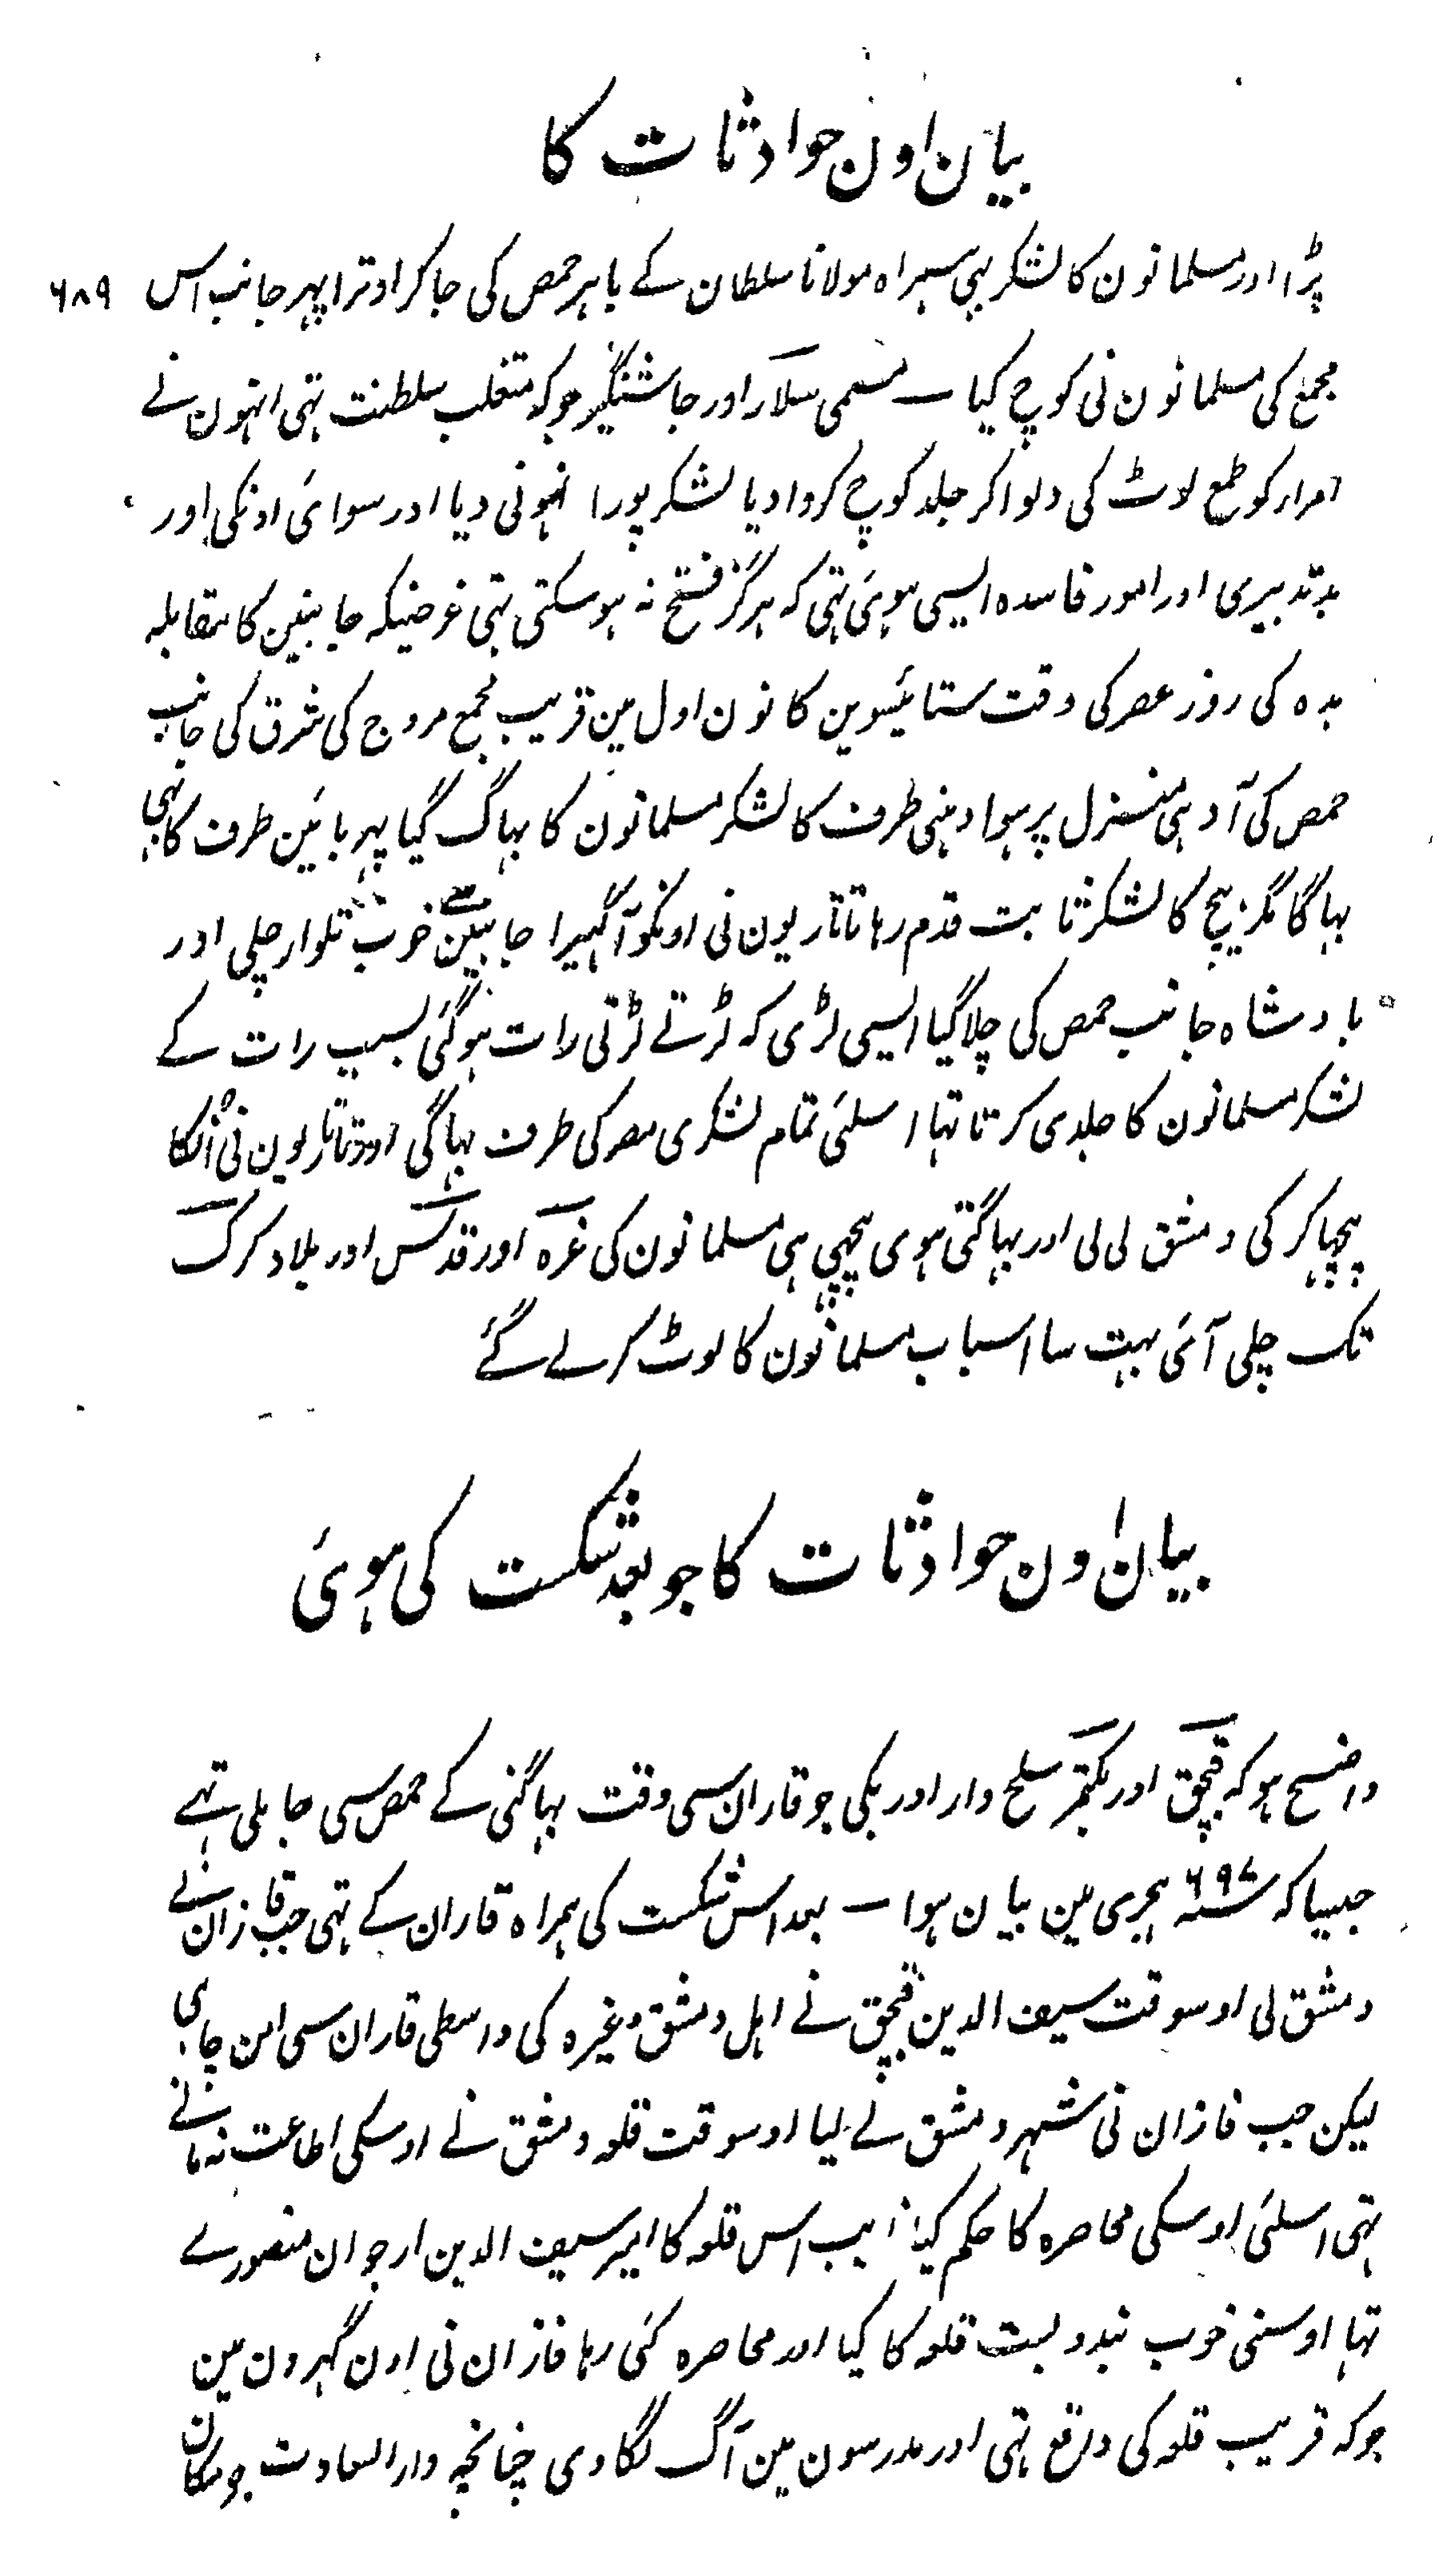 بیان اون حوادثات کا
۶۸۹
پڑا اور مسلمانون کا لشکر بہی ہمراہ مولانا سلطان کے باہر حمص کی جاکر اوترا پہر جانب اس
مجمع کی مسلمانون نی کوچ کیا — مسمی سلار اور جاشنگیر جو کہ متغلب سلطنت تہی انہون نے
امراء کو طمع لوٹ کی دلوا کر جلد کوچ کروا دیا لشکر پورا نہونی دیا اور سوائی اونکی اور
بدتدبیری اور امور فاسدہ ایسی ہوئی تہی کہ ہرگز فتح نہ ہو سکتی تہی غرضیکہ جانبین کا مقابلہ
بدہ کی روز عصر کی وقت ستائیسوین کانون اول مین قریب مجمع مروج کی شرق کی جانب
حمص کی آدہی منزل پر ہوا دہنی طرف کا لشکر مسلمانون کا بہاگ گیا پہر بائین طرف کا بہی
بہاگا مگر بیچ کا لشکر ثابت قدم رہا تاتاریون نی اونکو آگہیرا جانبین سے خوب تلوار چلی اور
بادشاہ جانب حمص کی چلا گیا ایسی لڑی کہ لڑتے لڑتی رات ہوگئی بسبب رات کے
لشکر مسلمانون کا جلدی کرتا تہا اسلئی تمام لشکری مصر کی طرف بہاگی اور تاتاریون نی انکا
پیچہا کر کی دمشق لی لی اور بہاگتی ہوی پیچہی ہی مسلمانون کی غزہ اور قدس اور بلاد کرک
تک چلی آئی بہت سا اسباب مسلمانون کا لوٹ کر لے گئے
بیان اون حوادثات کا جو بعد شکست کی ہوئی
واضح ہو کہ قپچق اور بکتمر سلح دار اور بکی جو قازان سی وقت بہاگنی کے حمص سی جا ملی تہے
جیسا کہ سنہ ۶۹۷ ہجری مین بیان ہوا — بعد اس شکست کی ہمراہ قازان کے تہی جب قازان نے
دمشق لی اوسوقت سیف الدین قپچق نے اہل دمشق وغیرہ کی واسطی قازان سی امن چاہی
لیکن جب قازان نی شہر دمشق لے لیا اوسوقت قلعہ دمشق نے اوسکی اطاعت نہ مانے
تہی اسلئی اوسکی محاصرہ کا حکم کیا نایب اس قلعہ کا امیر سیف الدین ارجوان منصورے
تہا اوسنی خوب بندوبست قلعہ کا کیا اور محاصرہ کئی رہا قازان نی اون گہرون مین
جو کہ قریب قلعہ کی واقع تہی اور مدرسون مین آگ لگا دی چنانچہ دار السعادت جو مکان